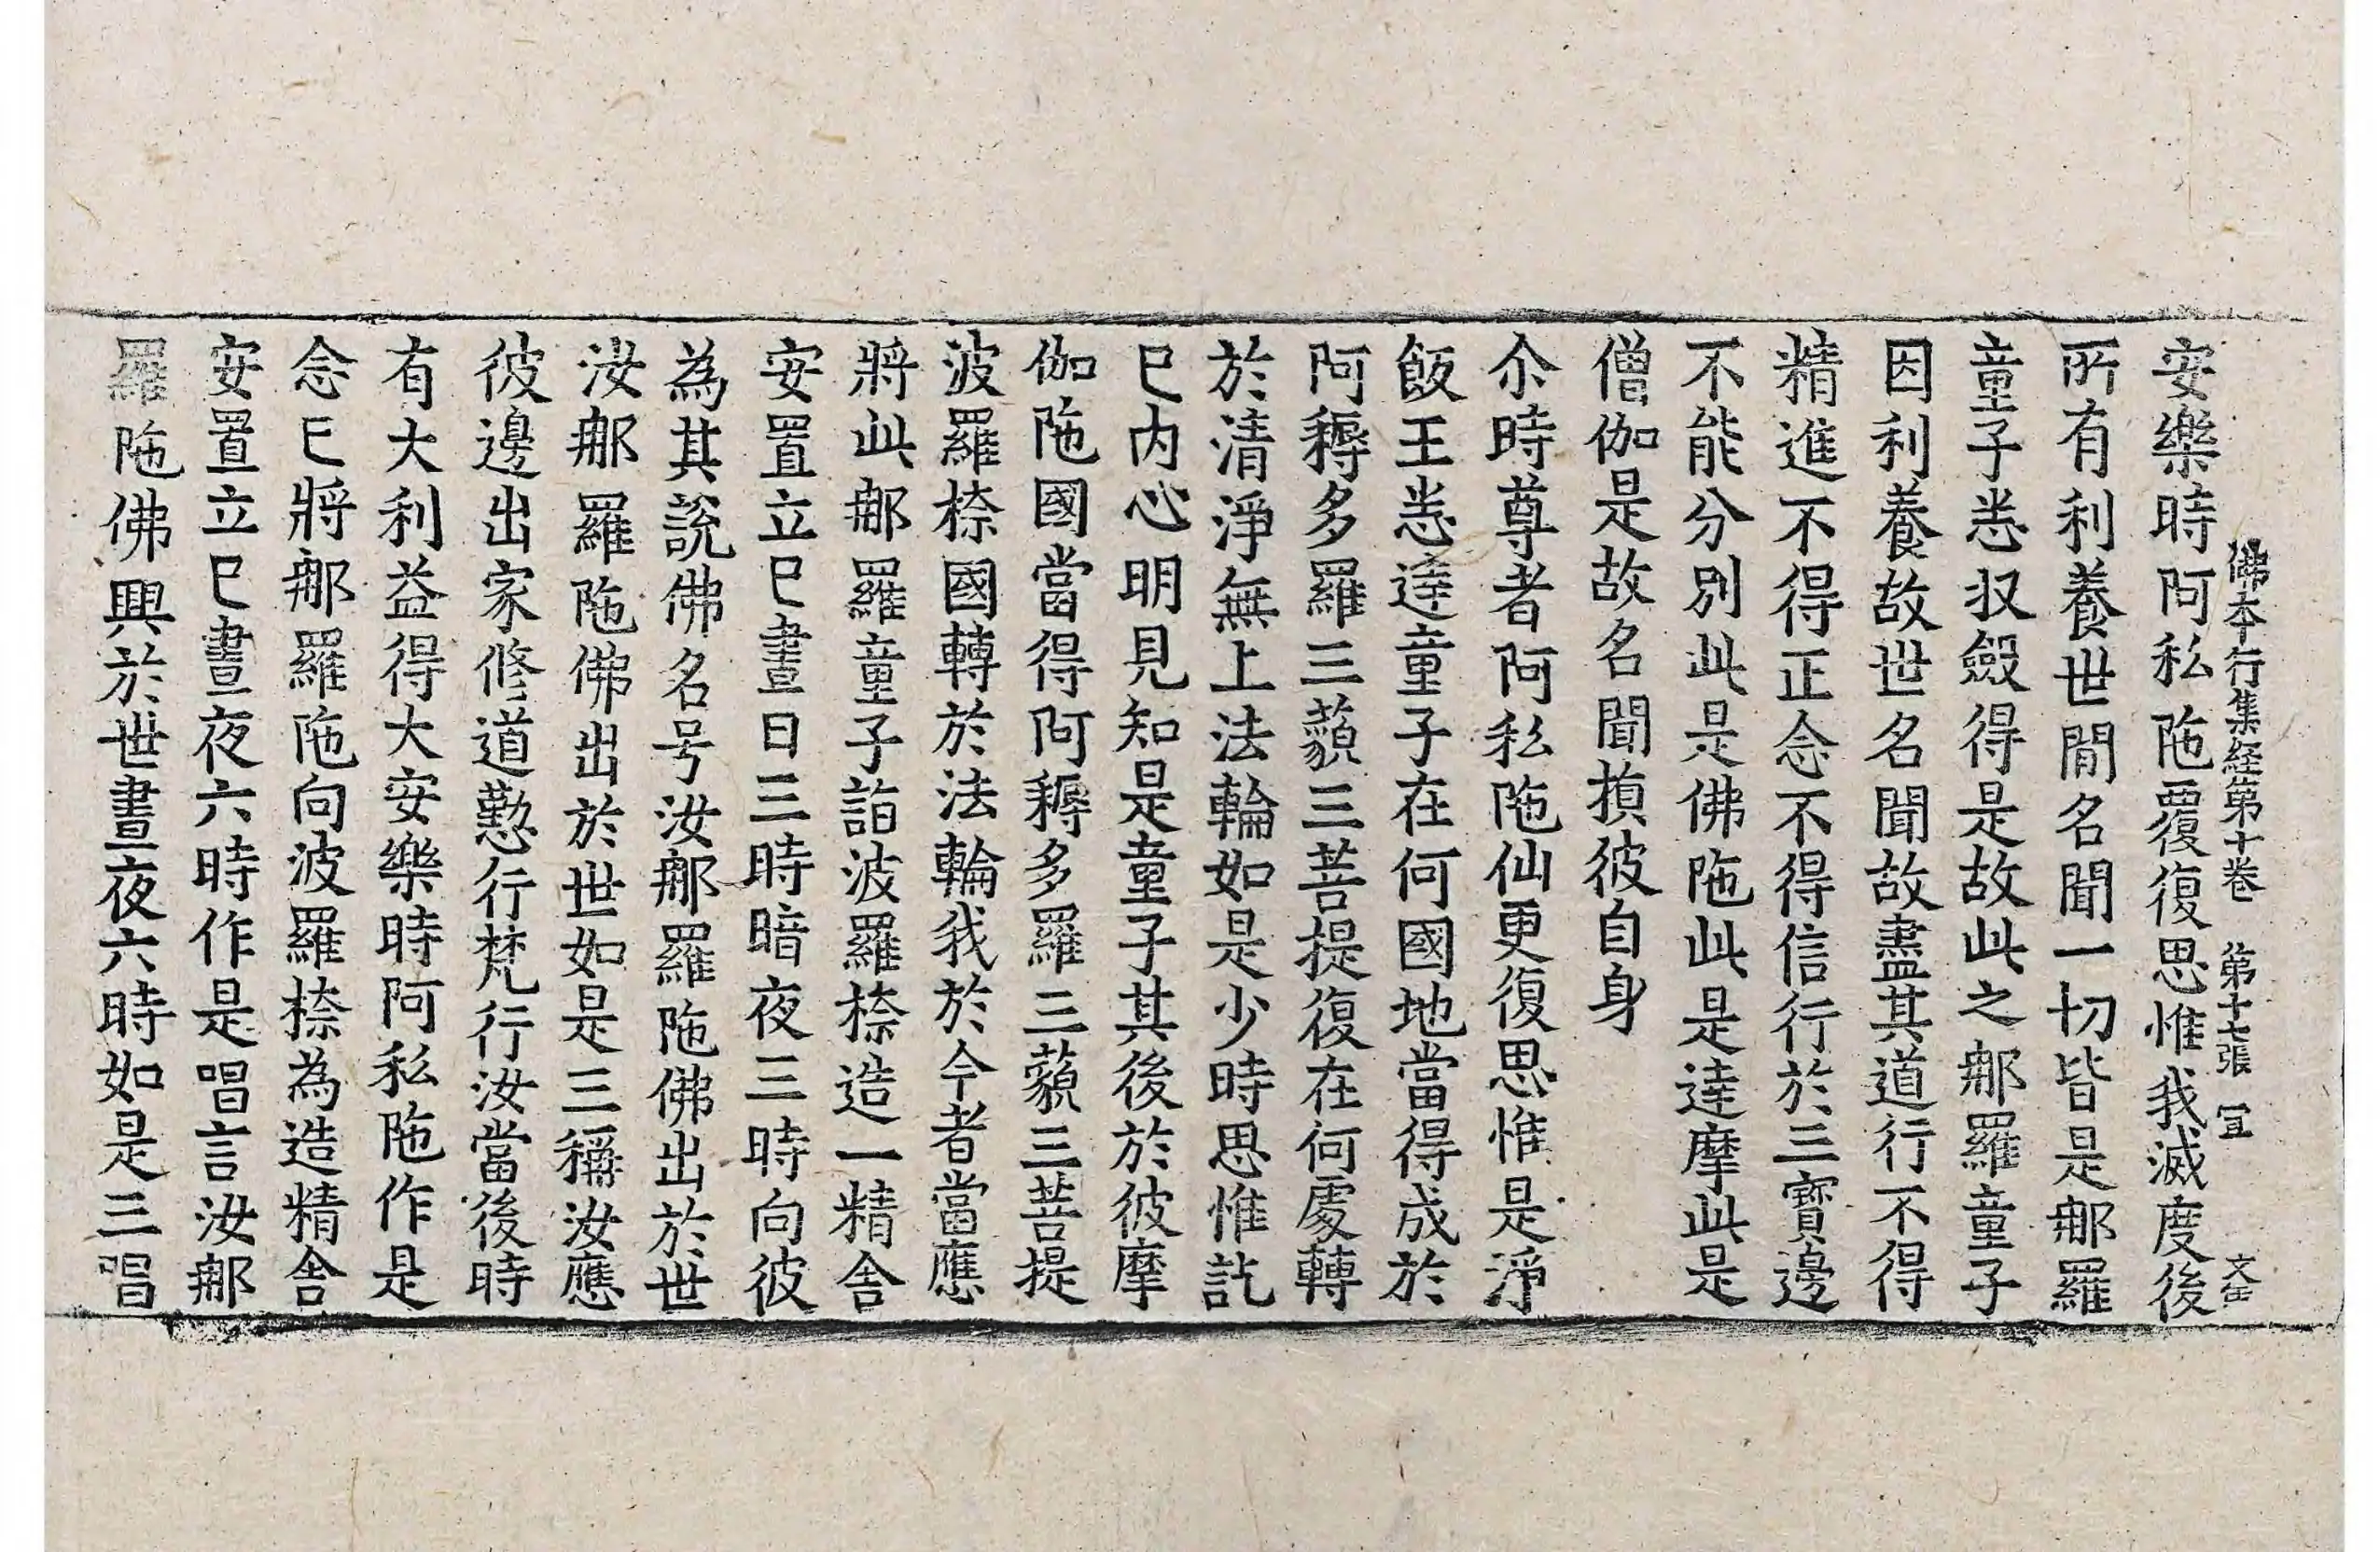 佛本行集経第十卷 第十七張 冝 文全
安樂時阿私陁覆復思惟我滅度後
所有利養世間名聞一切皆是郍羅
童子悉収斂得是故此之郍羅童子
因利養故世名聞故盡其道行不得
精進不得正念不得信行於三寶邊
不能分別此是佛陁此是達摩此是
僧伽是故名聞損彼自身
尒時尊者阿私陁仙更復思惟是淨
飯王悉達童子在何國地當得成於
阿耨多羅三藐三菩提復在何處轉
於清淨無上法輪如是少時思惟訖
已内心明見知是童子其後於彼摩
伽陁國當得阿耨多羅三藐三菩提
波羅㮈國轉於法輪我於今者當應
將此郍羅童子詣波羅㮈造一精舍
安置立已晝日三時暗夜三時向彼
為其說佛名号汝郍羅陁佛出於世
汝郍羅陁佛出於世如是三稱汝應
彼邊出家修道懃行梵行汝當後時
有大利益得大安樂時阿私陁作是
念已將郍羅陁向波羅㮈為造精舍
安置立已晝夜六時作是唱言汝郍
羅陁佛興於世晝夜六時如是三唱